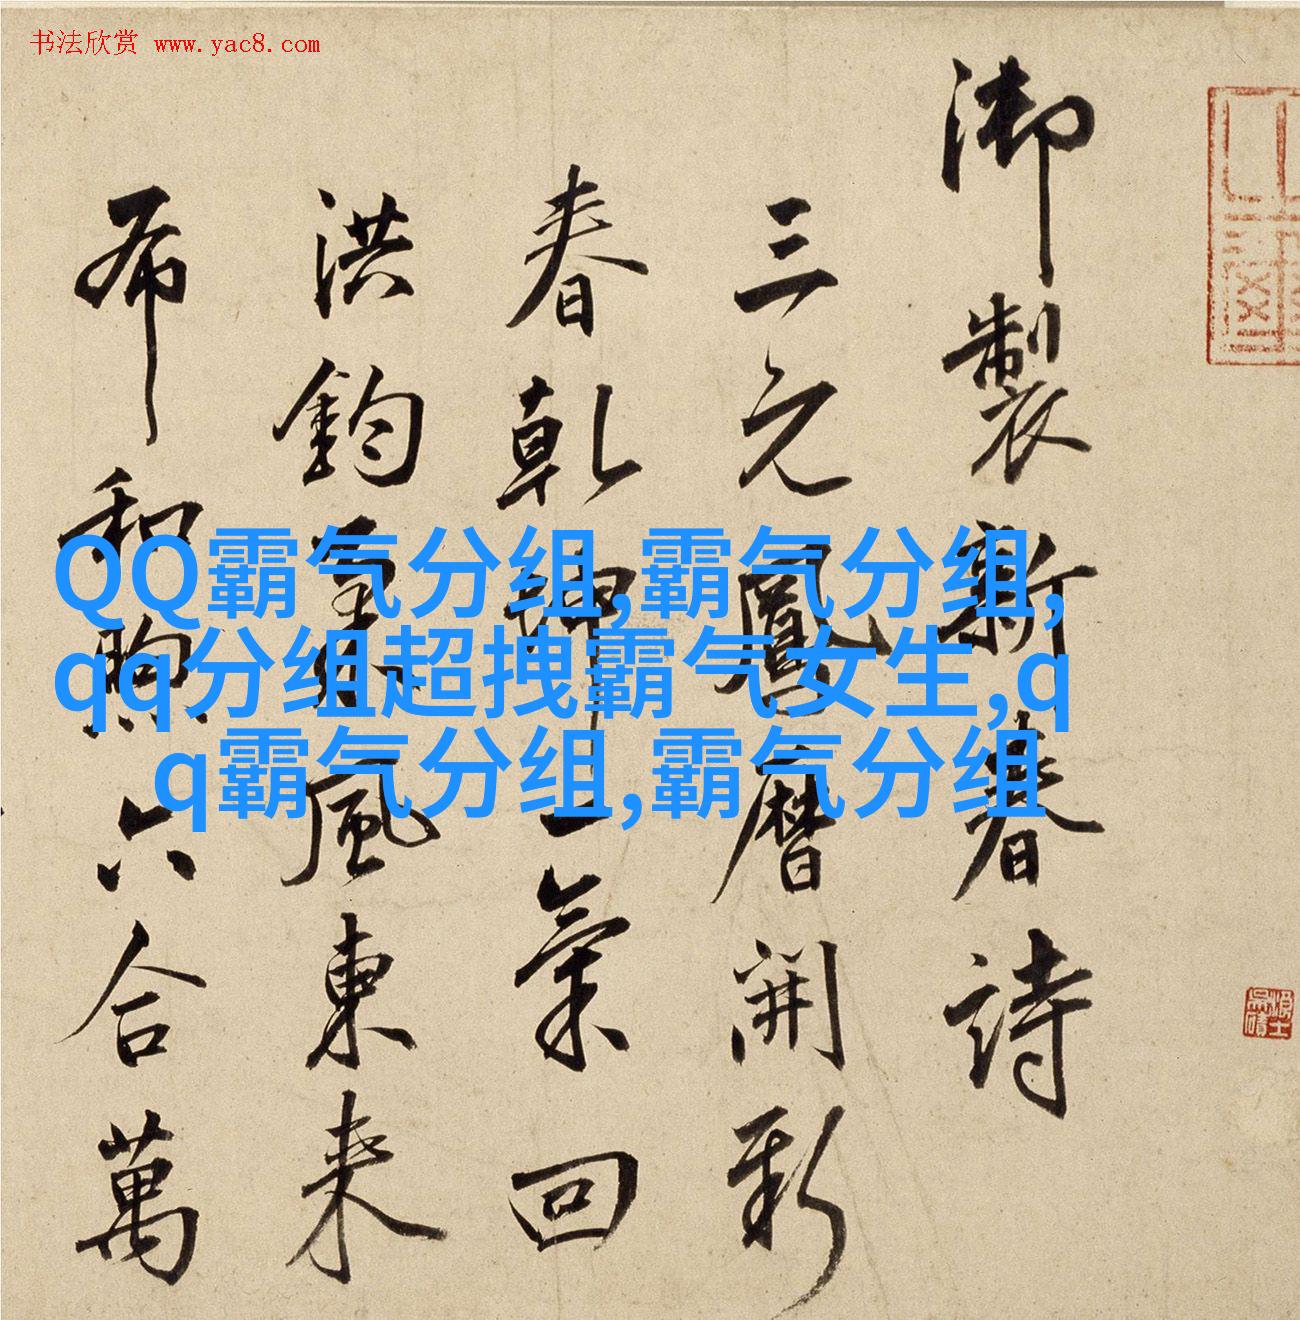 书法欣赏 www.yac8.com
御製新春詩
三元鳳曆開新
春乾坤一氣回
洪鈞風東來
布和煦六合萬
QQ霸气分组,霸气分组,
qq分组超拽霸气女生,q
q霸气分组,霸气分组